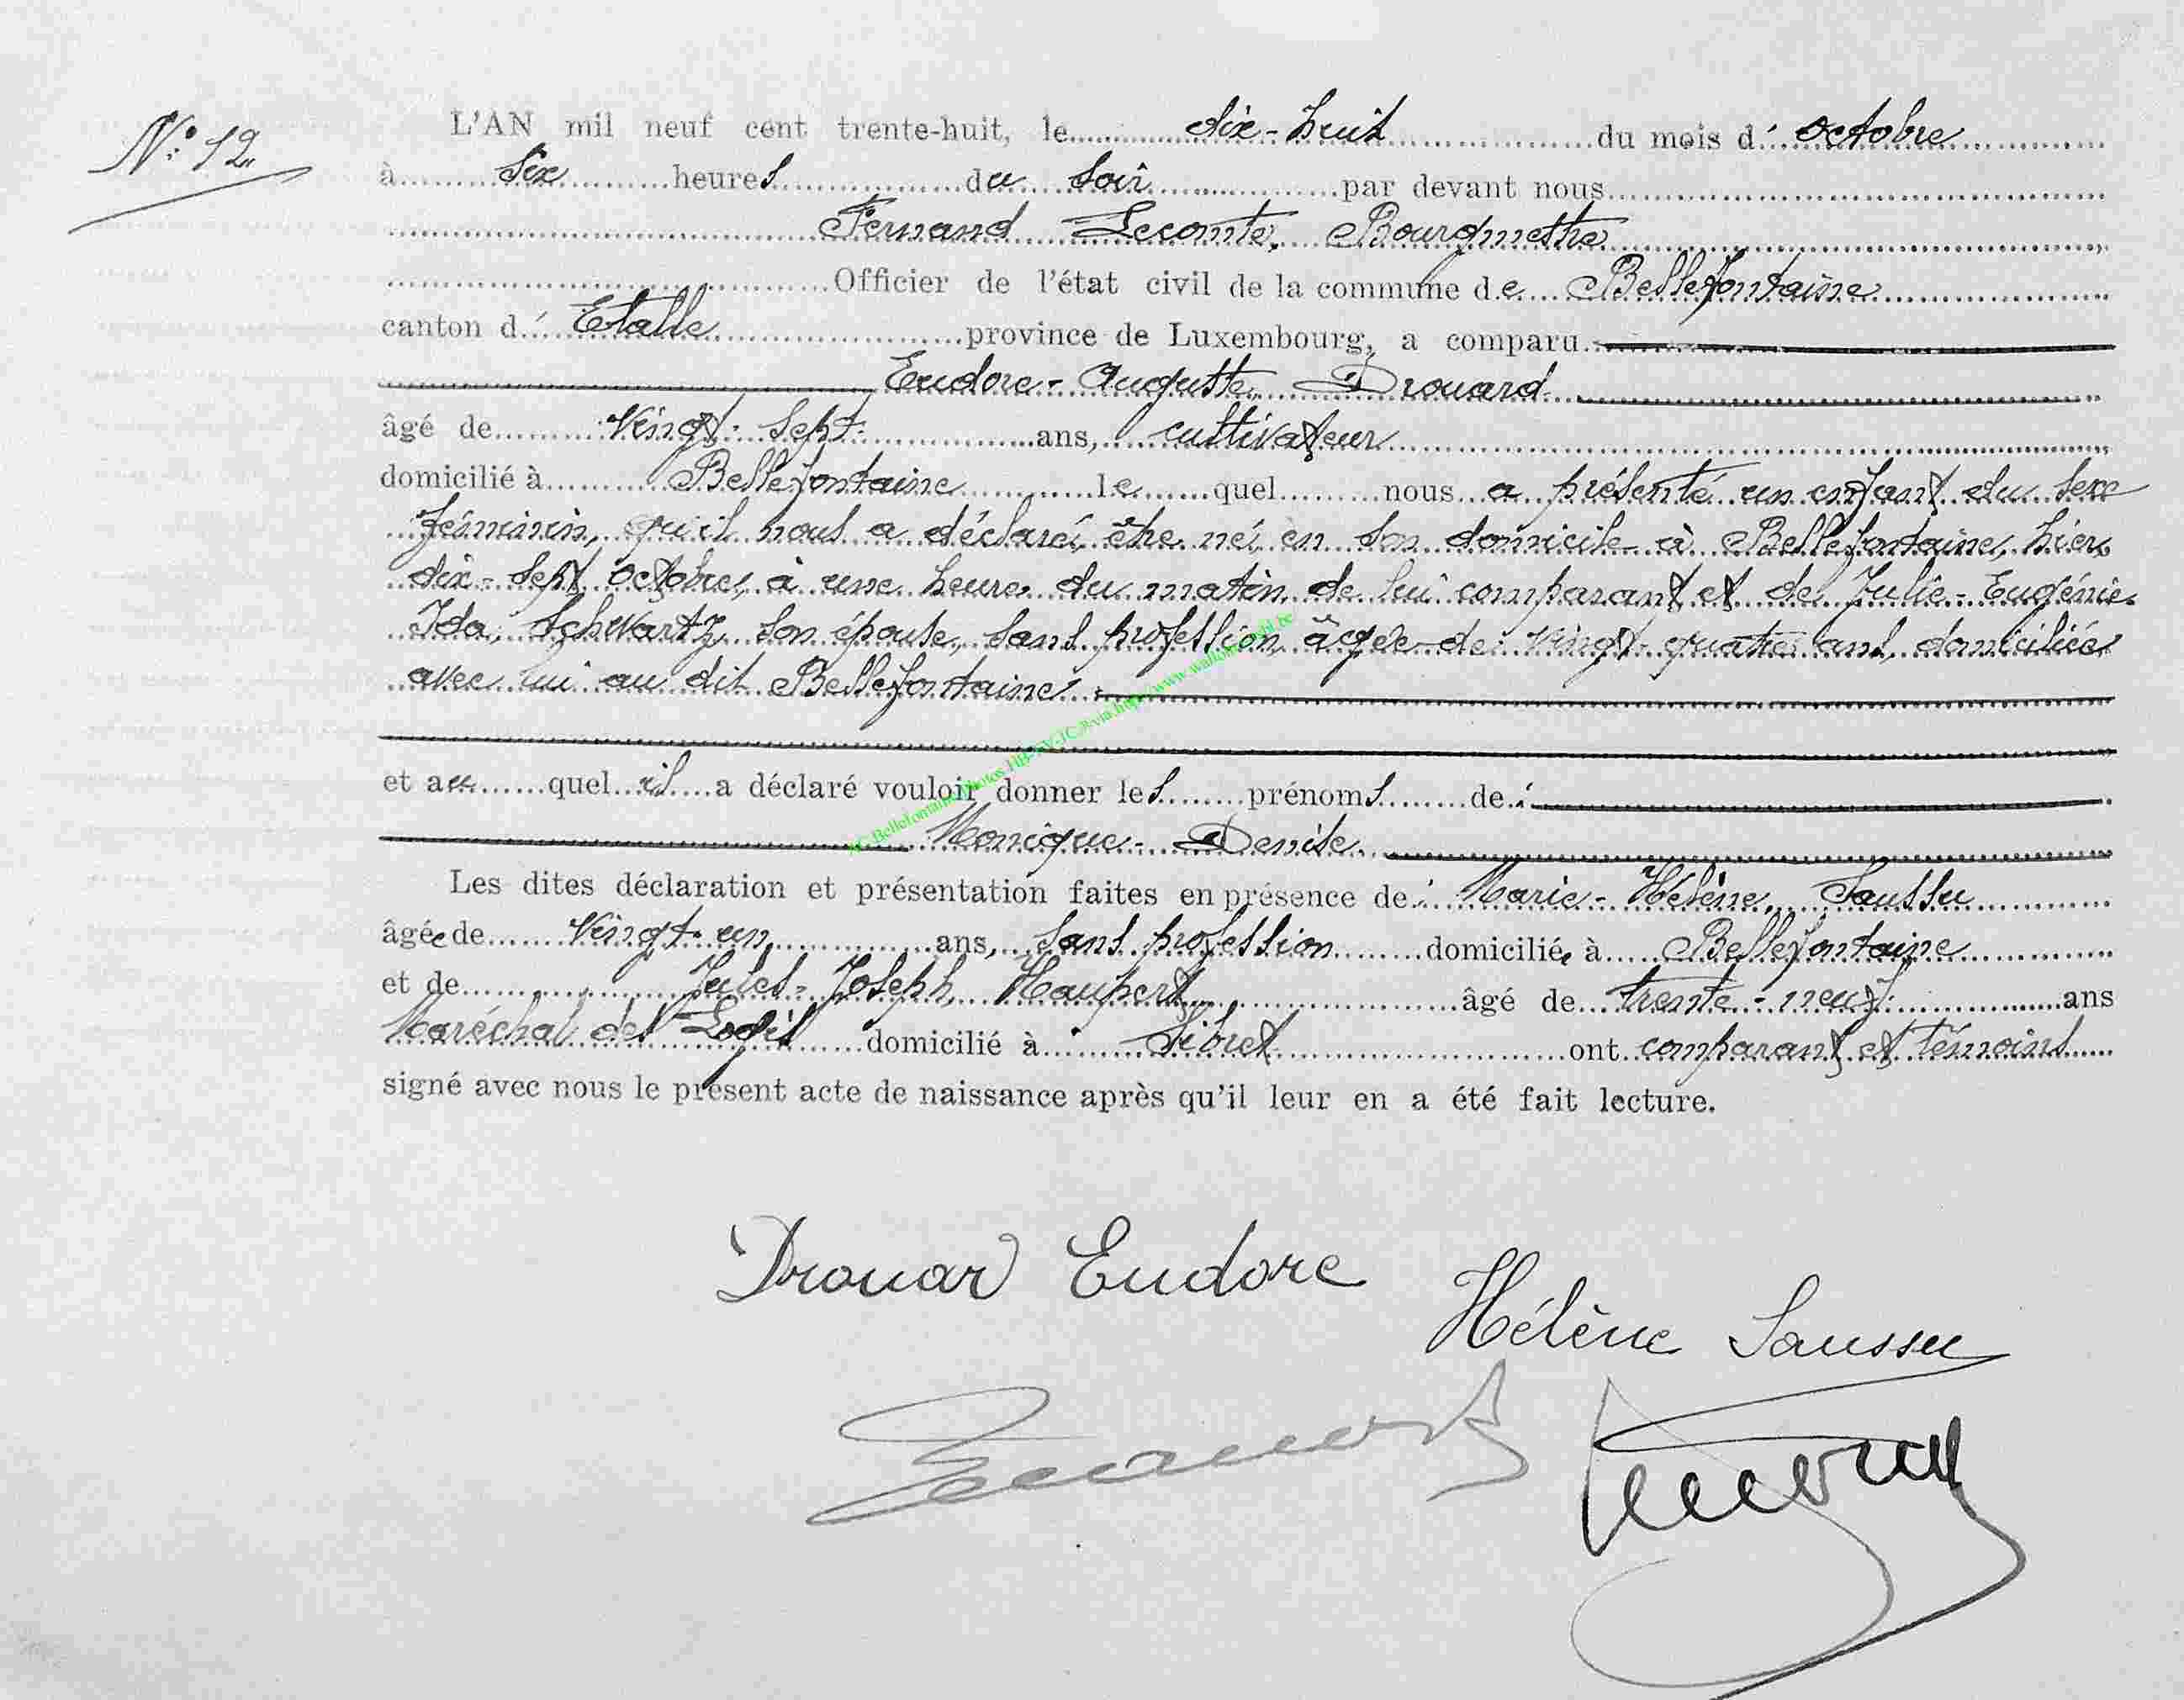 N° 12
L'AN mil neuf cent trente-huit, le dix-huit du mois d' octobre
à six heures du soir par devant nous
Fernand Lecomte, Bourgmestre
Officier de l'état civil de la commune de Bellefontaine
canton d' Etalle province de Luxembourg, a comparu
Eudore-Auguste Drouard
âgé de vingt-sept ans, cultivateur
domicilié à Bellefontaine lequel nous a présenté un enfant du sexe
féminin, qu'il nous a déclaré être né en son domicile à Bellefontaine, hier
dix-sept octobre, à une heure du matin de lui comparant et de Julie-Eugénie-
Ida, Schwartz son épouse, sans profession, âgée de vingt-quatre ans, domiciliée
avec lui au dit Bellefontaine
et auquel il a déclaré vouloir donner les prénoms de :
Monique-Denise
Les dites déclaration et présentation faites en présence de : Marie-Hélène, Saussu
âgée de vingt-un ans, sans profession domiciliée à Bellefontaine
et de Jules-Joseph, Haupert âgé de trente-neuf ans
Maréchal des Logis domicilié à Sibret ont comparant et témoins
signé avec nous le présent acte de naissance après qu'il leur en a été fait lecture.
Drouard Eudore
Hélène Saussu